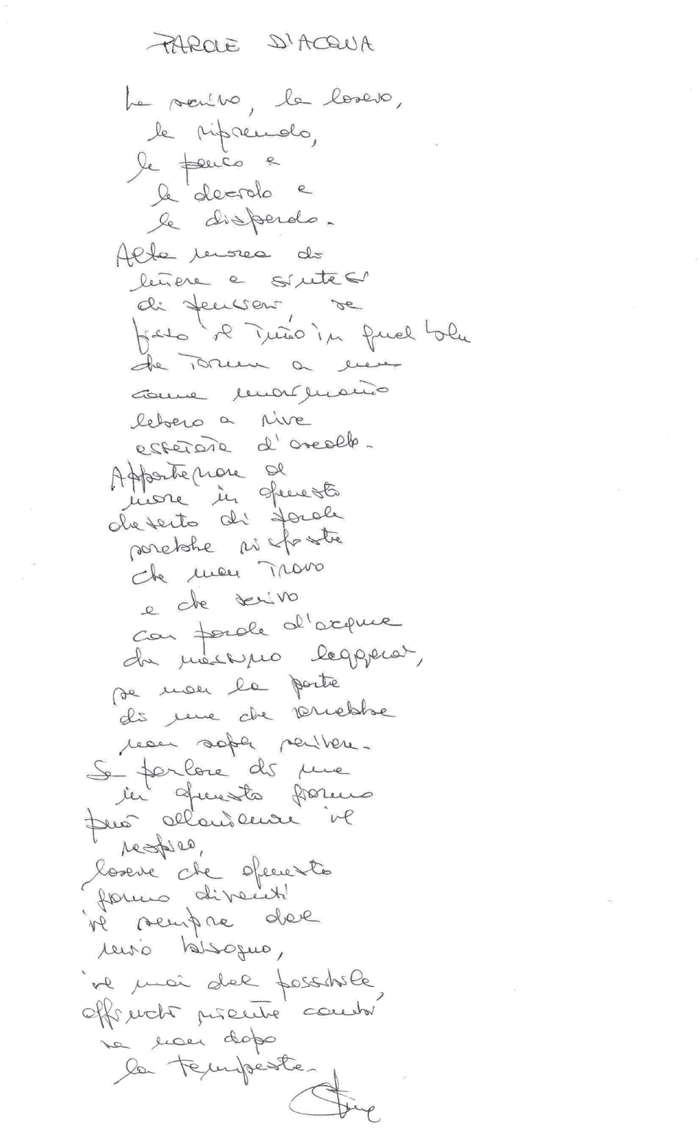 PAROLE D'ACQUA
Le scrivo, le lascio,
le riprendo,
le penso e
le decido e
le disperdo.
Alla ricerca di
lettere e sintesi
di pensieri, se
fisso il
che torna a me
come
libero a rive
assetate d'ascolto.
Appartenere al
mare in questo
deserto di parole
sarebbe risposte
che non trovo
e che scrivo
con parole d'acqua
che nessuno leggerà,
se non la parte
di me che vorrebbe
non saper scrivere.
Se parlare di me
in questo giorno
può allontanare il
respiro,
lascia che questo
giorno diventi
il sempre del
mio bisogno,
il mai del possibile,
affinché niente cambi
se non dopo
la tempesta.